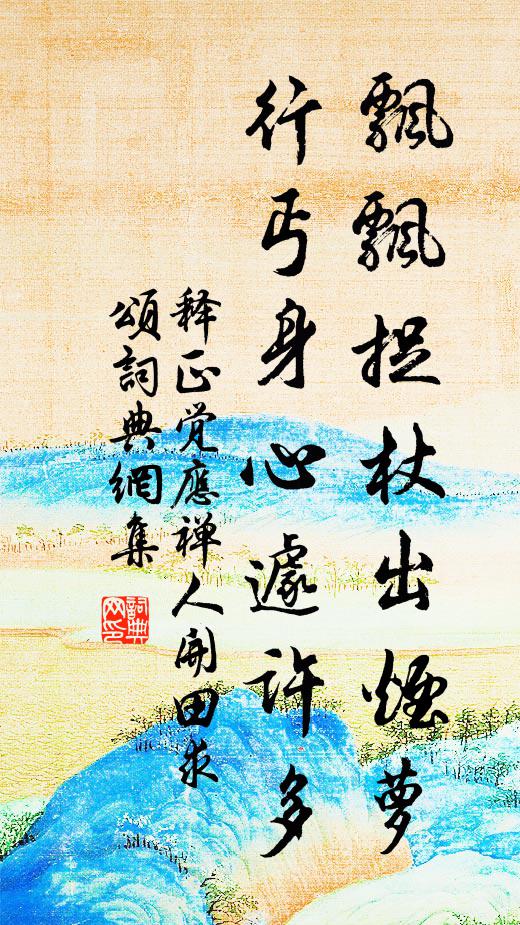 飄飄捉杖出煙萝
行丐身心遽许多
释正觉應禅人開田求
頌詞典網集
詞典
网印